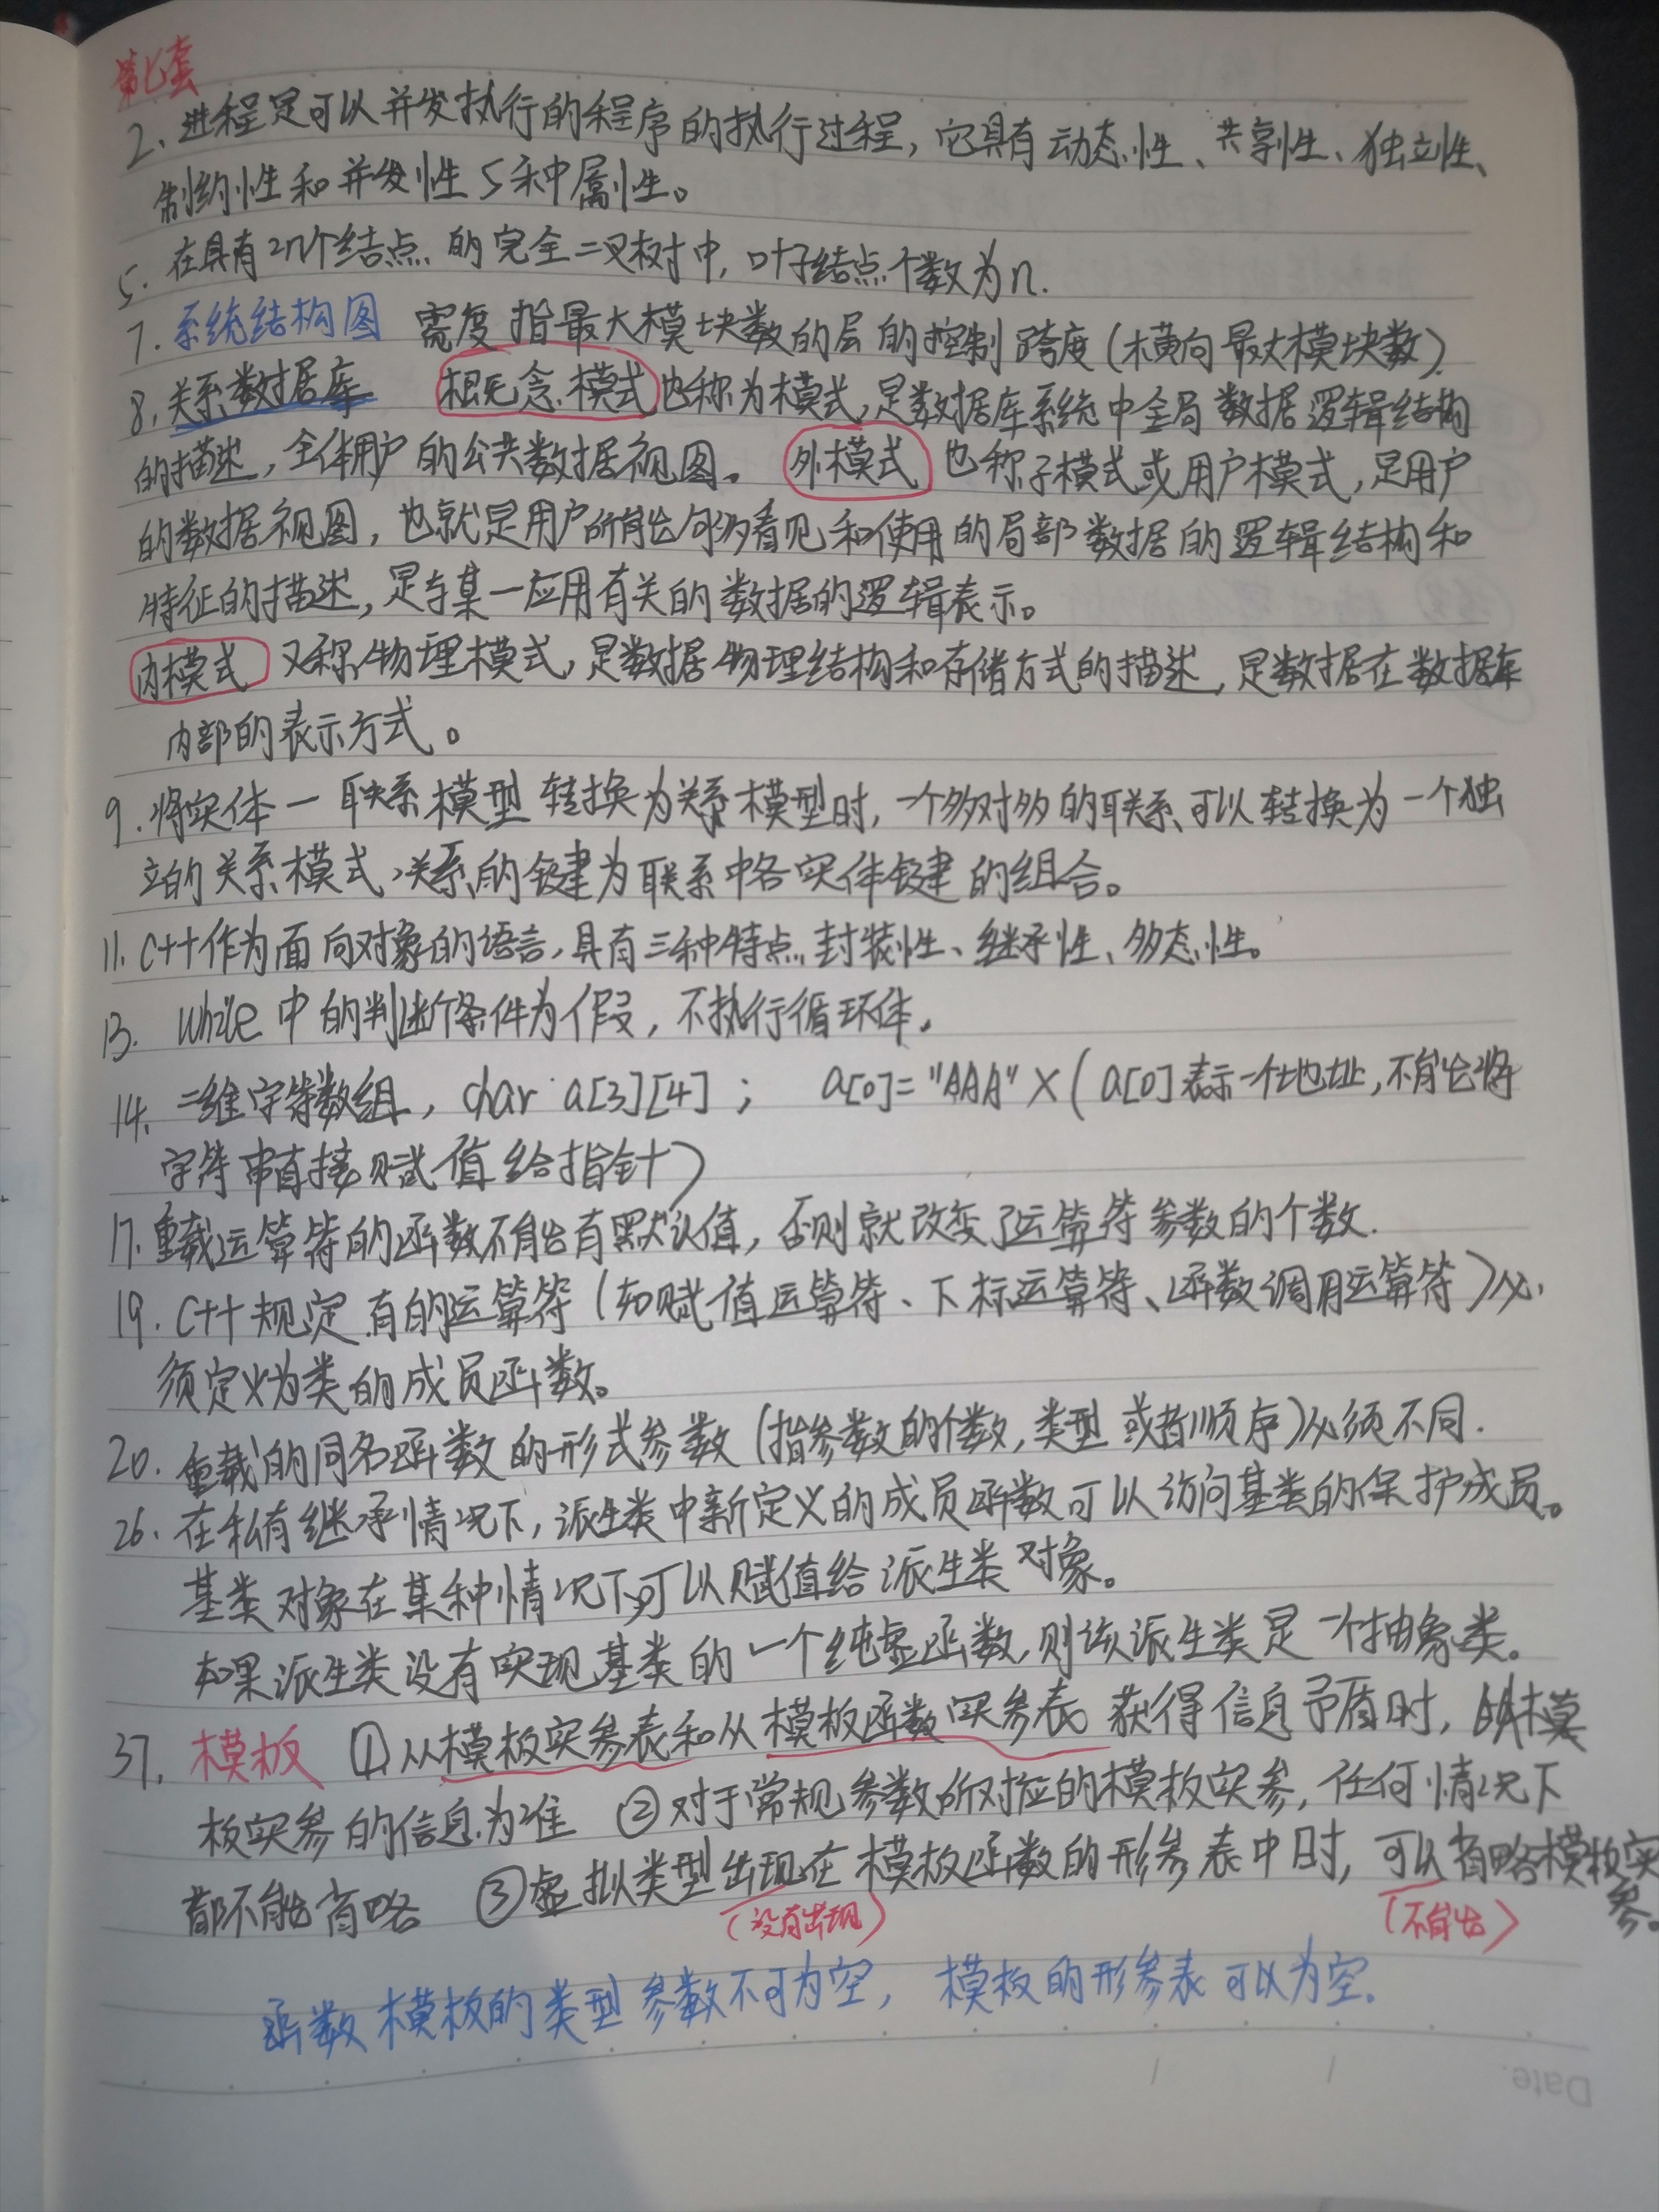 第七套
2. 进程是可以并发执行的程序的执行过程，它具有动态性、共享性、独立性、
制约性和并发性5种属性。
5. 在具有2n个结点的完全二叉树中，叶子结点个数为n.
7. 系统结构图 宽度指最大模块数的层的控制跨度(横向最大模块数)
8. 关系数据库 概念模式也称为模式，是数据库系统中全局数据逻辑结构
的描述，全体用户的公共数据视图。外模式也称子模式或用户模式，是用户
的数据视图，也就是用户所能够看见和使用的局部数据的逻辑结构和
特征的描述，是与某一应用有关的数据的逻辑表示。
内模式又称物理模式，是数据物理结构和存储方式的描述，是数据在数据库
内部的表示方式。
9. 将实体一联系模型转换为关系模型时，一个多对多的联系可以转换为一个独
立的关系模式，关系的键为联系中各实体键的组合。
11. C++作为面向对象的语言，具有三种特点封装性、继承性、多态性。
13. While中的判断条件为假，不执行循环体。
14. 二维字符数组，char a[3][4]； a[0]="AAA" ×(a[0]表示一个地址，不能将
字符串直接赋值给指针)
17. 重载运算符的函数不能有默认值，否则就改变了运算符参数的个数.
19. C++规定有的运算符(如赋值运算符、下标运算符、函数调用运算符)必
须定义为类的成员函数。
20. 重载的同名函数的形式参数(指参数的个数，类型或者顺序)必须不同.
26. 在私有继承情况下，派生类中新定义的成员函数可以访问基类的保护成员。
基类对象在某种情况下可以赋值给派生类对象。
如果派生类没有实现基类的一个纯虚函数，则该派生类是一个抽象类。
37. 模板 ①从模板实参表和从模板函数实参表获得信息矛盾时，以模
板实参的信息为准 ②对于常规参数所对应的模板实参，任何情况下
都不能省略 ③虚拟类型出现在模板函数的形参表中时，可以省略模板实
参。
(没有出现) (不能)
函数模板的类型参数不可为空，模板的形参表可以为空.
Date.